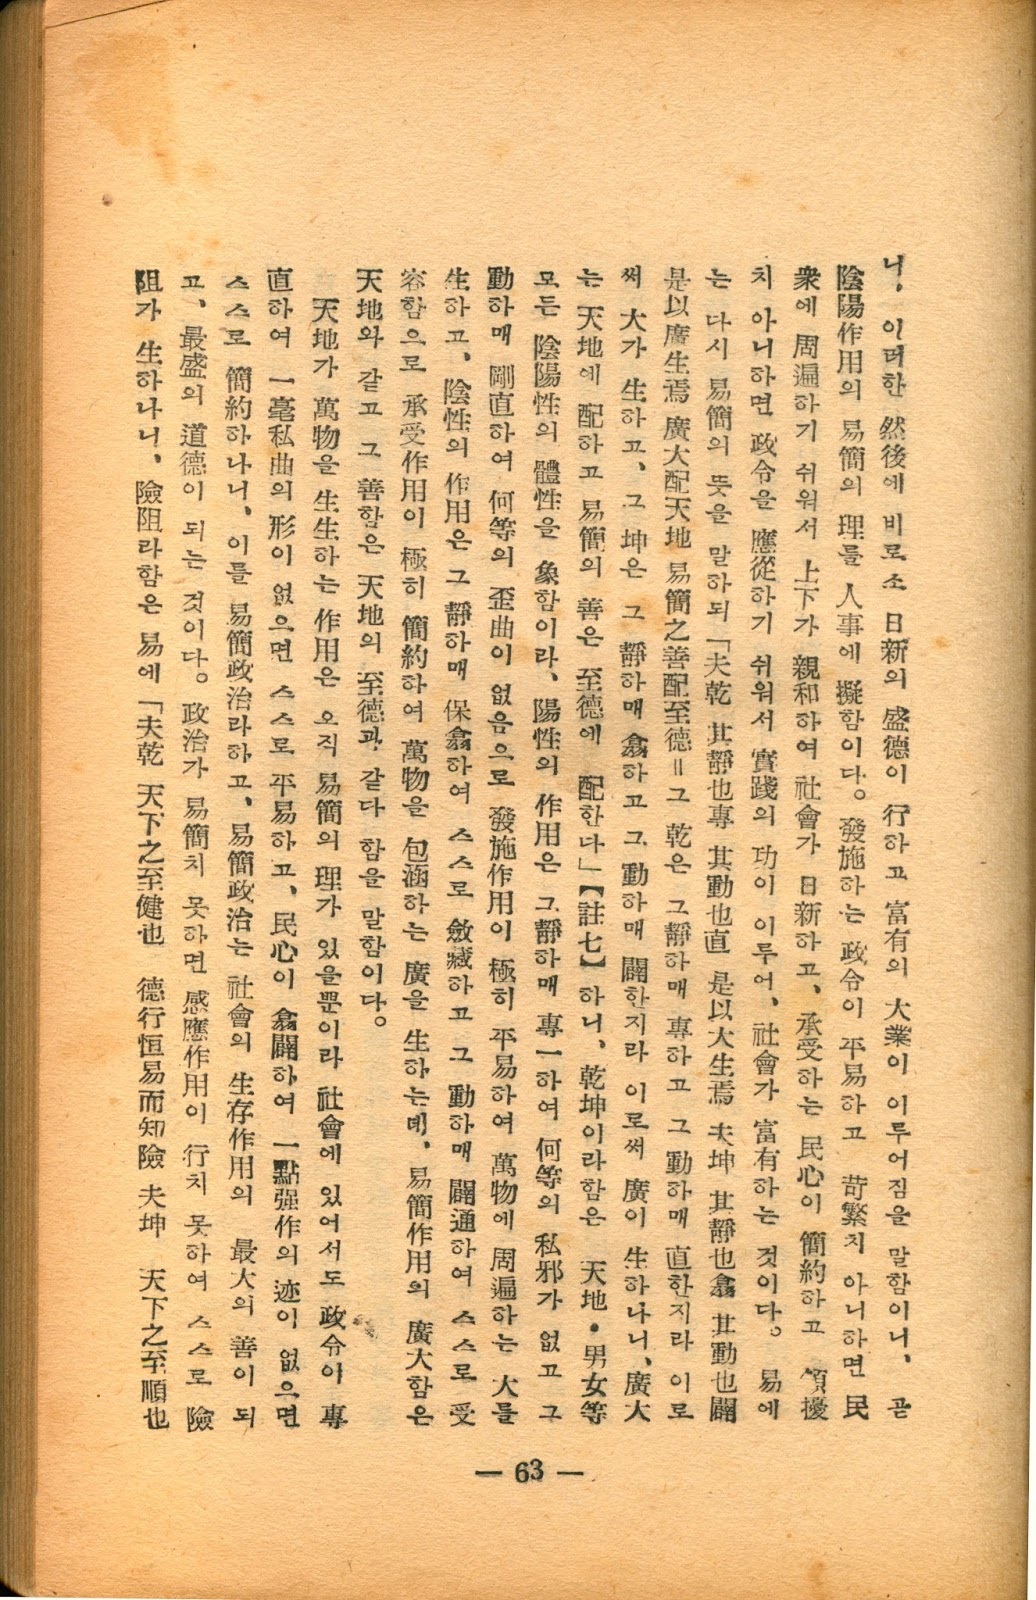 니, 이러한 然後에 비로소 日新의 盛德이 行하고 富有의 大業이 이루어짐을 말함이니, 곧
陰陽作用의 易簡의 理를 人事에 擬함이다。 發施하는 政令이 平易하고 苛繁치 아니하면 民
衆에 周遍하기 쉬워서 上下가 親和하여 社會가 日新하고、承受하는 民心이 簡約하고 煩擾
치 아니하면 政令을 應從하기 쉬워서 實踐의 功이 이루어、社會가 富有하는 것이다。 易에
는 다시 易簡의 뜻을 말하되「夫乾 其靜也專 其動也直 是以大生焉 夫坤 其靜也翕 其動也闢
是以廣生焉 廣大配天地 易簡之善配至德＝그 乾은 그 靜하매 專하고 그 動하매 直한지라 이로
써 大가 生하고、그 坤은 그 靜하매 翕하고 그 動하매 闢한지라 이로써 廣이 生하나니、廣大
는 天地에 配하고 易簡의 善은 至德에 配한다」【註七】하니、乾坤이라함은 天地・男女等
모든 陰陽性의 體性을 象함이라、陽性의 作用은 그 靜하매 專一하여 何等의 私邪가 없고 그
動하매 剛直하여 何等의 歪曲이 없음으로 發施作用이 極히 平易하여 萬物에 周遍하는 大를
生하고、陰性의 作用은 그 靜하매 保翕하여 스스로 斂藏하고 그 動하매 闢通하여 스스로 受
容함으로 承受作用이 極히 簡約하여 萬物을 包涵하는 廣을 生하는데、易簡作用의 廣大함은
天地와 같고 그 善함은 天地의 至德과 같다 함을 말함이다。
天地가 萬物을 生生하는 作用은 오직 易簡의 理가 있을뿐이라 社會에 있어서도 政令이 專
直하여 一毫私曲의 形이 없으면 스스로 平易하고、民心이 翕闢하여 一點强作의 迹이 없으면
스스로 簡約하나니、이를 易簡政治라하고、易簡政治는 社會의 生存作用의 最大의 善이 되
고、最盛의 道德이 되는 것이다。政治가 易簡치 못하면 感應作用이 行치 못하여 스스로 險
阻가 生하나니、險阻라함은 易에「夫乾 天下之至健也 德行恒易而知險 夫坤 天下之至順也
— 63 —